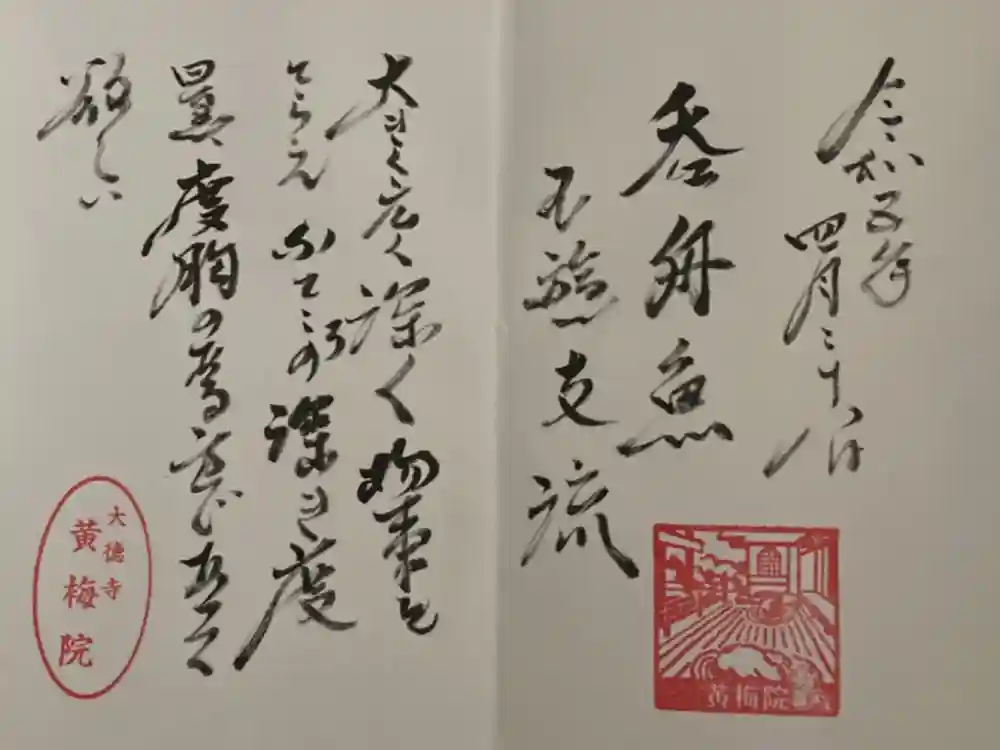 令和五年
四月二十八日
呑舟魚
不遊支流
大きく広く深く物事を
とらえ の深き度
量 度胸の
欲しい
黄梅院
大徳寺
黄梅院